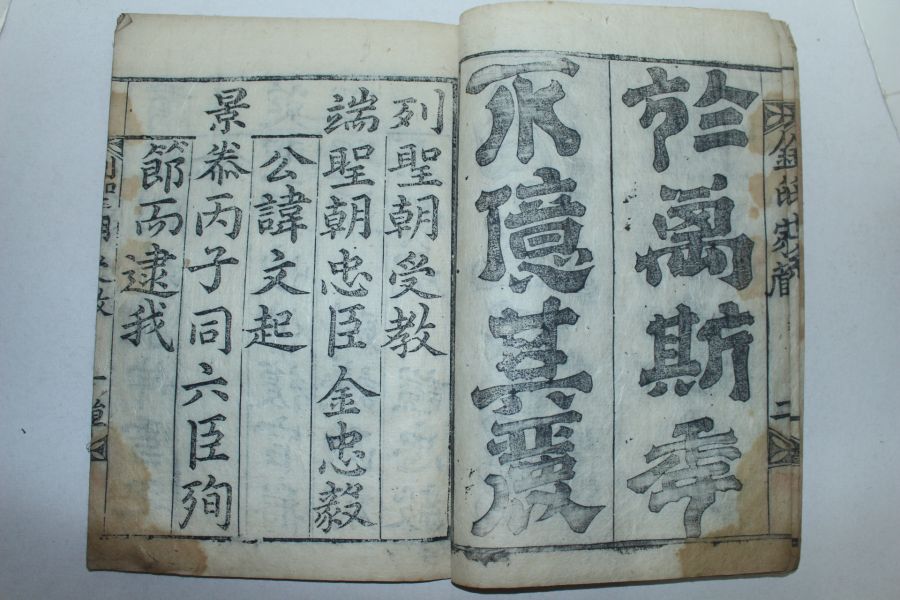 二
於萬斯秊
不億其麗
列聖朝受教
端聖朝忠臣金忠毅
公諱文起
景泰丙子同六臣殉
節而逮我